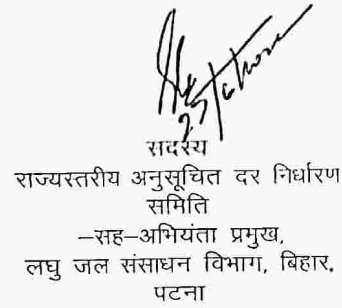 सदस्य
राज्यस्तरीय अनुसूचित दर निर्धारण
समिति
–सह–अभियंता प्रमुख,
लघु जल संसाधन विभाग, बिहार,
पटना